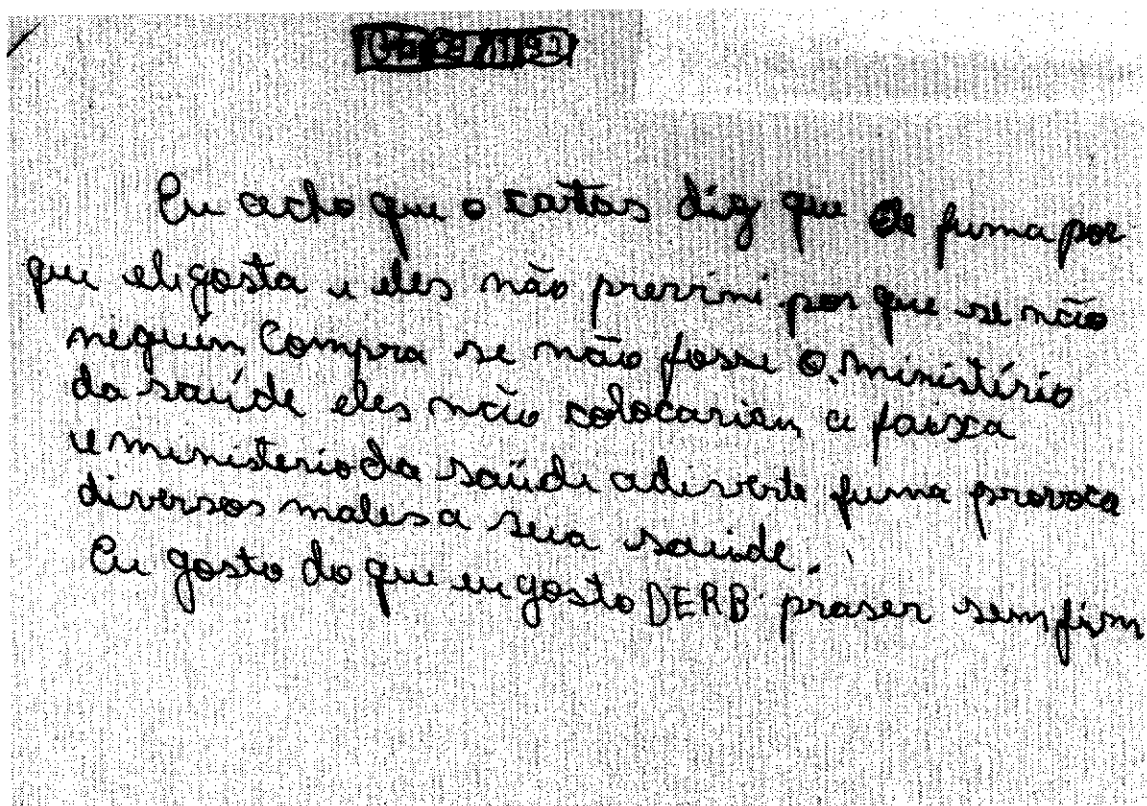 Eu acho que o cartas diz que ele fuma por
que eli gosta e eles não previni por que se não
neguin Compra se não fosse o ministério
da saúde eles não colocarian a faixa
e ministerio da saúde adiverte fuma provoca
diversos males a sua saúde.
Eu gosto do que eu gosto DERB praser sem fim